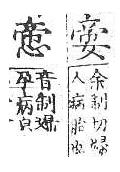 余制切婦
人病胎也
音制婦
孕病皃